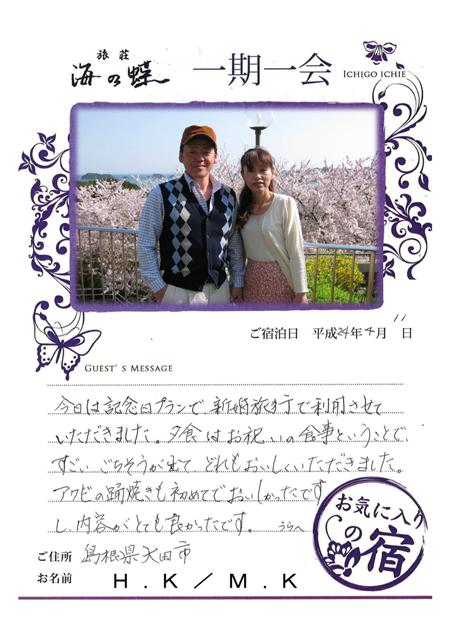 旅荘
海の蝶
一期一会
ICHIGO ICHIE
ご宿泊日 平成24年4月11日
GUEST'S MESSAGE
今日は記念日プランで、新婚旅行で利用させて
いただきました。夕食はお祝いの食事ということで、
すごいごちそうが出て どれもおいしくいただきました。
アワビの踊焼きも初めてでおいしかったです
し、内容がとても良かったです。 うらへ
お気に入り
の宿
ご住所 島根県大田市
お名前 H.K/M.K